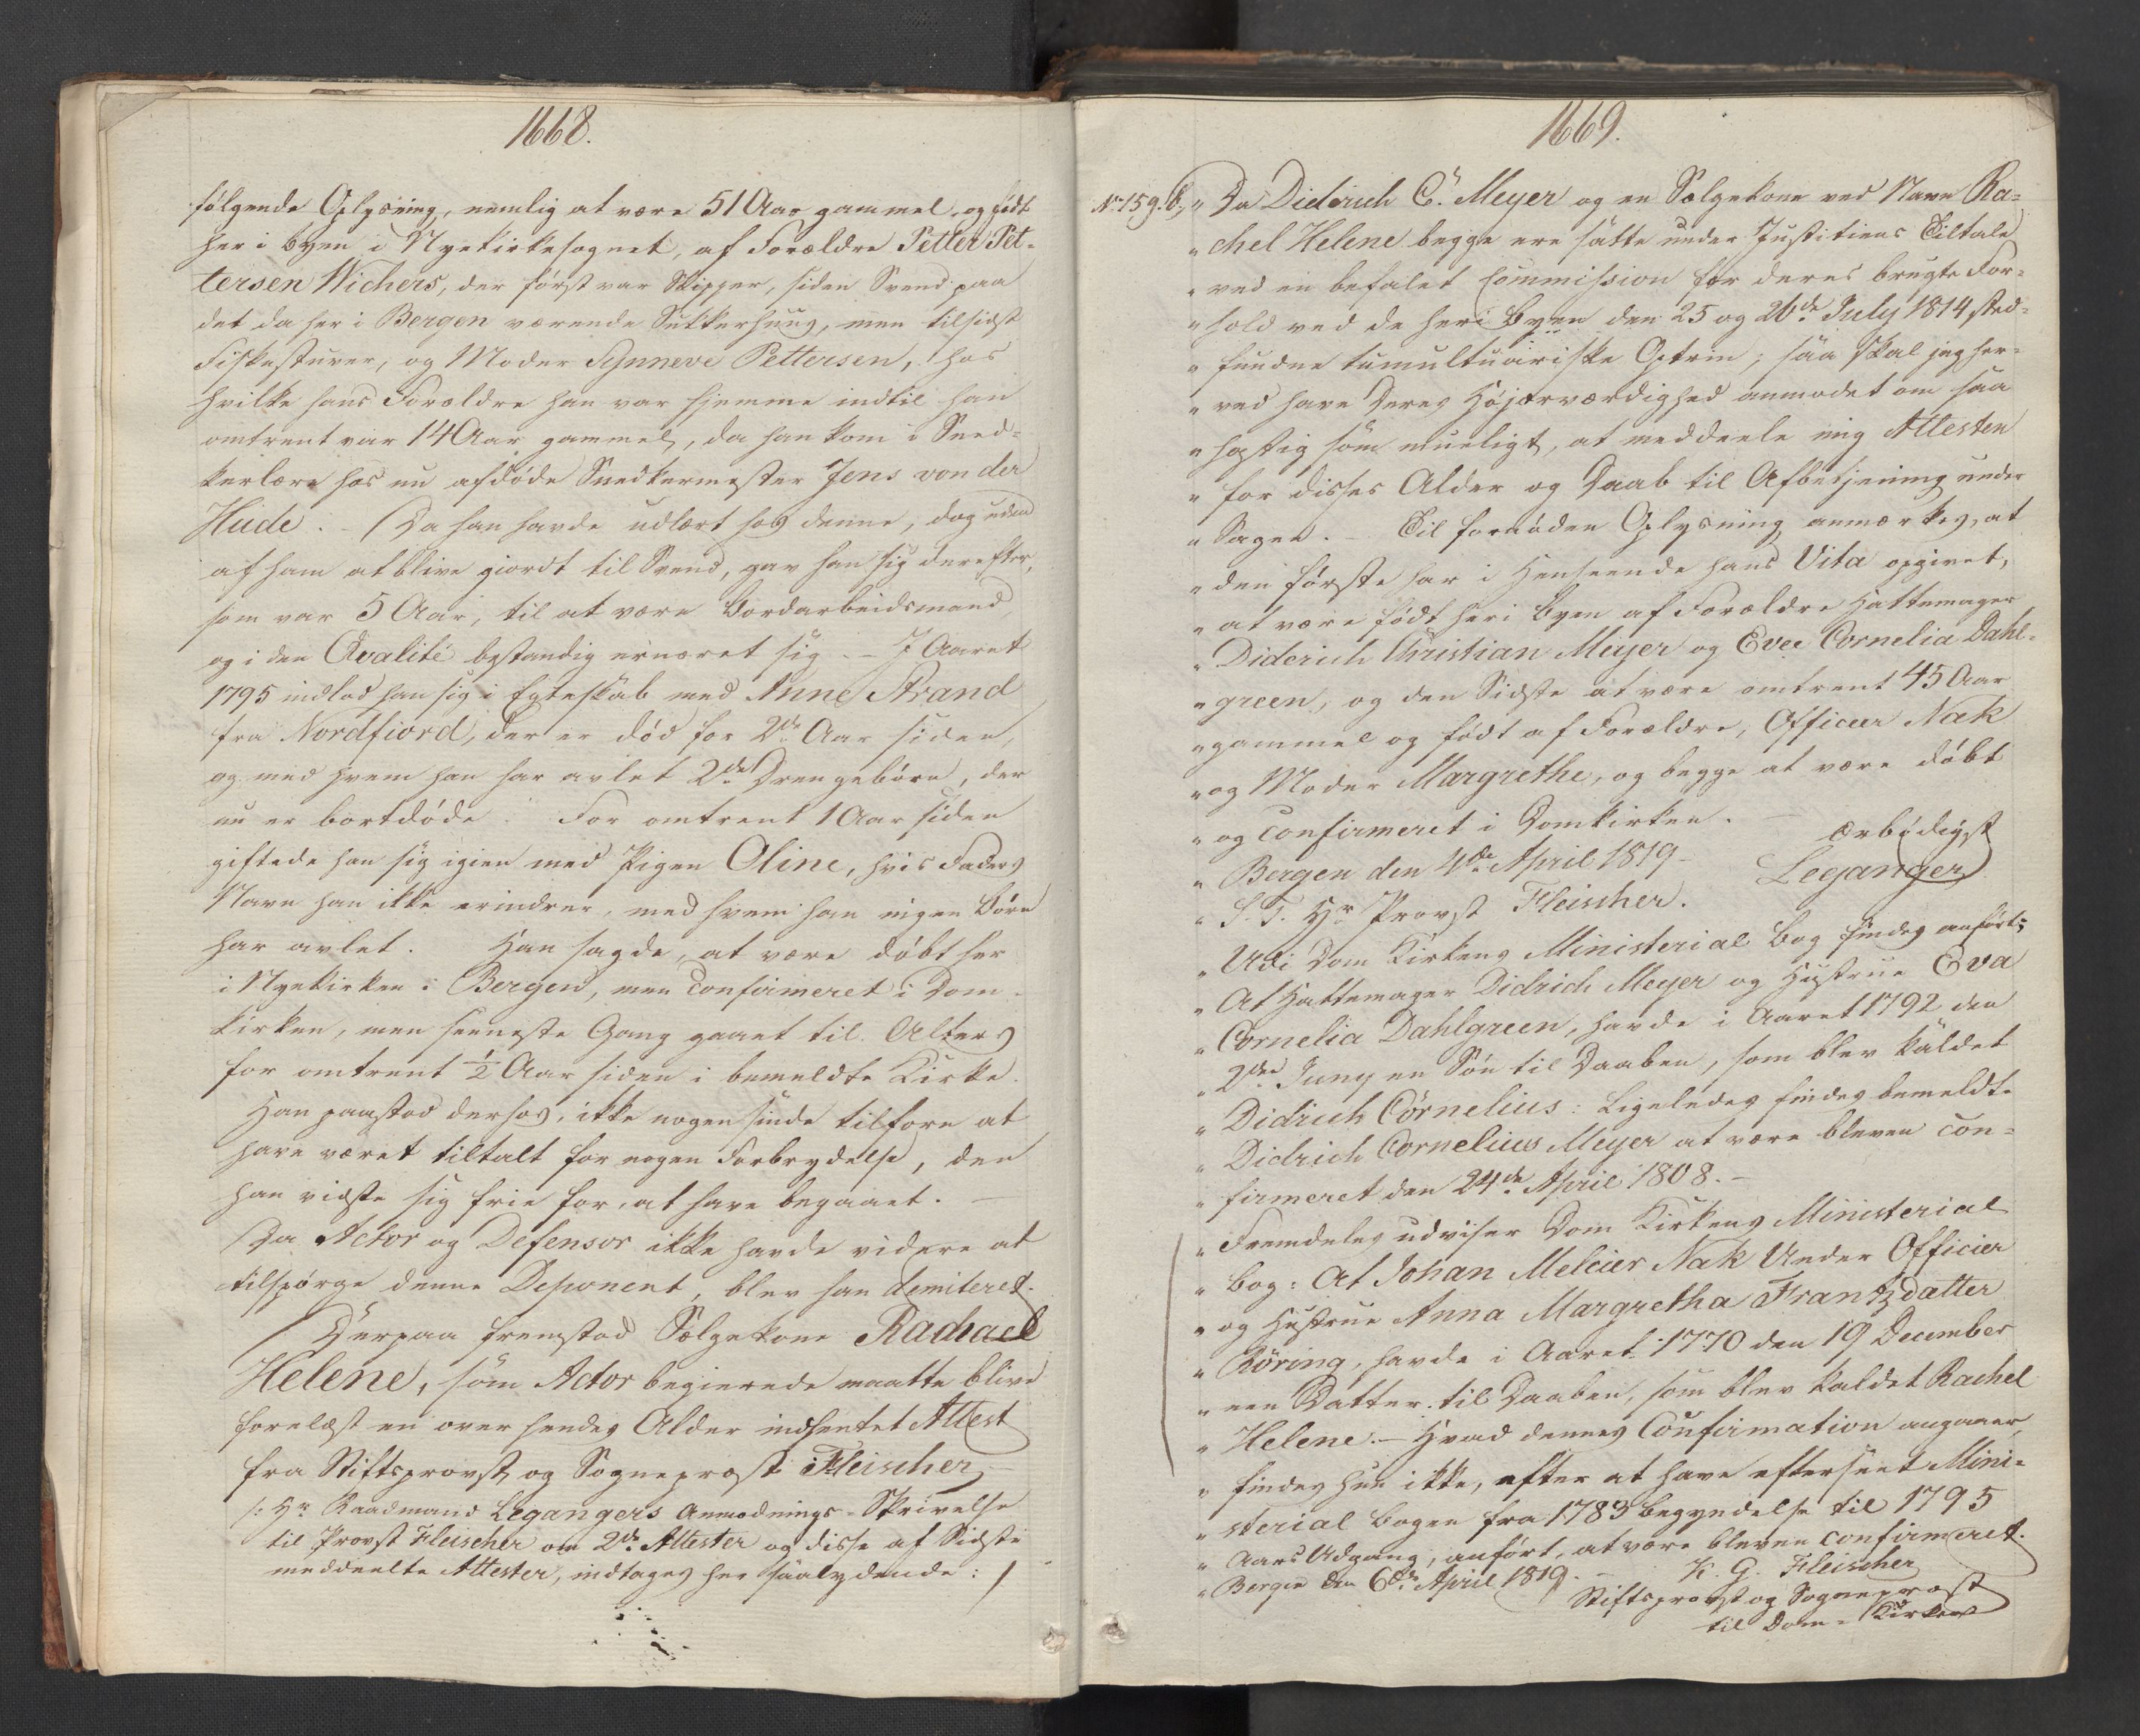 1668.
følgende Oplysning, nemlig at være 51 Aar gammel, og født
her i byen i Nyekirkesognet, af Forældre Petter Pet-
tersen Wichers, der først var Skipper, siden Svend paa
det da her i Bergen værende Sukkerhuus, men tilsidst
Fiskestuver, og Moder Synneve Pettersen, hos
hvilke hans Forældre han var hjemme indtil han
omtrent var 14 Aar gammel, da han kom i Sned-
kerlære hos nu afdøde Snedkermester Jens von der
Hude. - Da han havde udlært hos denne, dog uden
af ham at blive giordt til Svend, gav han sig derefter,
som var 5 Aar, til at være Bordarbeidsmand,
og i den Qvalité bestandig ernæret sig. - I Aaret
1795 indlod han sig i Egteskab med Anne Strand
fra Nordfiord, der er død for 2de Aar siden,
og med hvem han har avlet 2de Drengebørn, der
nu er bortdøde. For omtrent 1 Aar siden
giftede han sig igien med Pigen Oline, hvis Faders
Navn han ikke erindrer, med hvem han ingen Børn
har avlet. Han sagde, at være døbt her
i Nyekirken i Bergen, men Confirmeret i Dom-
kirken, men seeneste Gang gaaet til Alters
for omtrent ½ Aar siden i bemeldte Kirke.
Han paastod derhos, ikke nogensinde tilforn at
have været tiltalt for nogen Forbrydelse, den
han vidste sig frie for, at have begaaet. -
Da Actor og Defensor ikke havde videre at
tilspørge denne Deponent, blev han demiteret.
Derpaa fremstod Sælgekone Rachael
Helene, som Actor begierede maatte blive
forelæst en over hendes Alder indhentet Attest
fra Stiftsprovst og Sognepræst Fleischer
/: Hr Raadmand Legangers Anmodnings-Skrivelse
til Provst Fleischer om 2de Attester og disse af Sidste
meddeelte Attester, indtages her saalydende: /
1669.
No 159. b, " Da Diderich C. Meyer og en Sælgekone ved Navn Ra-
" chel Helene begge ere satte under Justitiens Tiltale
" ved en befalet Commission for deres brugte For-
" hold ved de her i Byen den 25 og 26de July 1814 sted-
" fundne tumultuariske Optrin; saa skal jeg her-
" ved have Deres Højærværdighed anmodet om saa
" hastig som mueligt, at meddeele mig Attesten
" for disses Alder og Daab til Afbetjening under
" Sagen. - Til fornøden Oplysning anmærkes, at
" den første har i Henseende hans Vita opgivet,
" at være født her i Byen af Forældre Hattemager
" Diderich Christian Meyer og Evee Cornelia Dahl-
" green, og den Sidste at være omtrent 45 Aar
" gammel og født af Forældre, Officeer Nak
" og Moder Margrethe, og begge at være døbt
" og Confirmeret i Domkirken. -
ærbødigst
" Bergen den 4de April 1819. Leganger
" S. T. Hr Provst Fleischer.
" Udi Dom Kirkens Ministerial Bog findes anført:
" At Hattemager Didrich Meyer og Hustrue Eva
" Cornelia Dahlgreen, havde i Aaret 1792 den
" 2den Juny en Søn til Daaben, som blev kaldet
" Didrich Cornelius: Ligeledes findes bemeldte
" Didrich Cornelius Meyer at være bleven Con-
" firmeret den 24de April 1808. -
" Fremdeles udviser Dom Kirkens Ministerial
" Bog: At Johan Meleier Nak Under Officier
" og Hustrue Anna Margretha Frantzdatter
" Röring, havde i Aaret 1770 den 19 December
" een Datter til Daaben, som blev kaldet Rachel
" Helene. - Hvad dennes Confirmation angaaer,
" findes hun ikke, efter at have efterseet Mini-
" sterial Bogen fra 1783 begyndelse til 1795
" Aars Udgang, anført, at være bleven Confirmeret.
" Bergen den 6de April 1819. - K. G. Fleischer
Stiftsprovst og Sognepræst
til Dom-Kirken